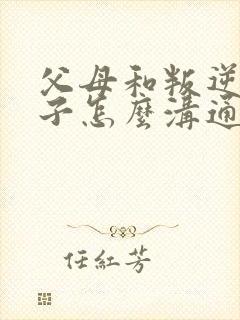 父母和叛逆
子怎麼溝通
任紅芳